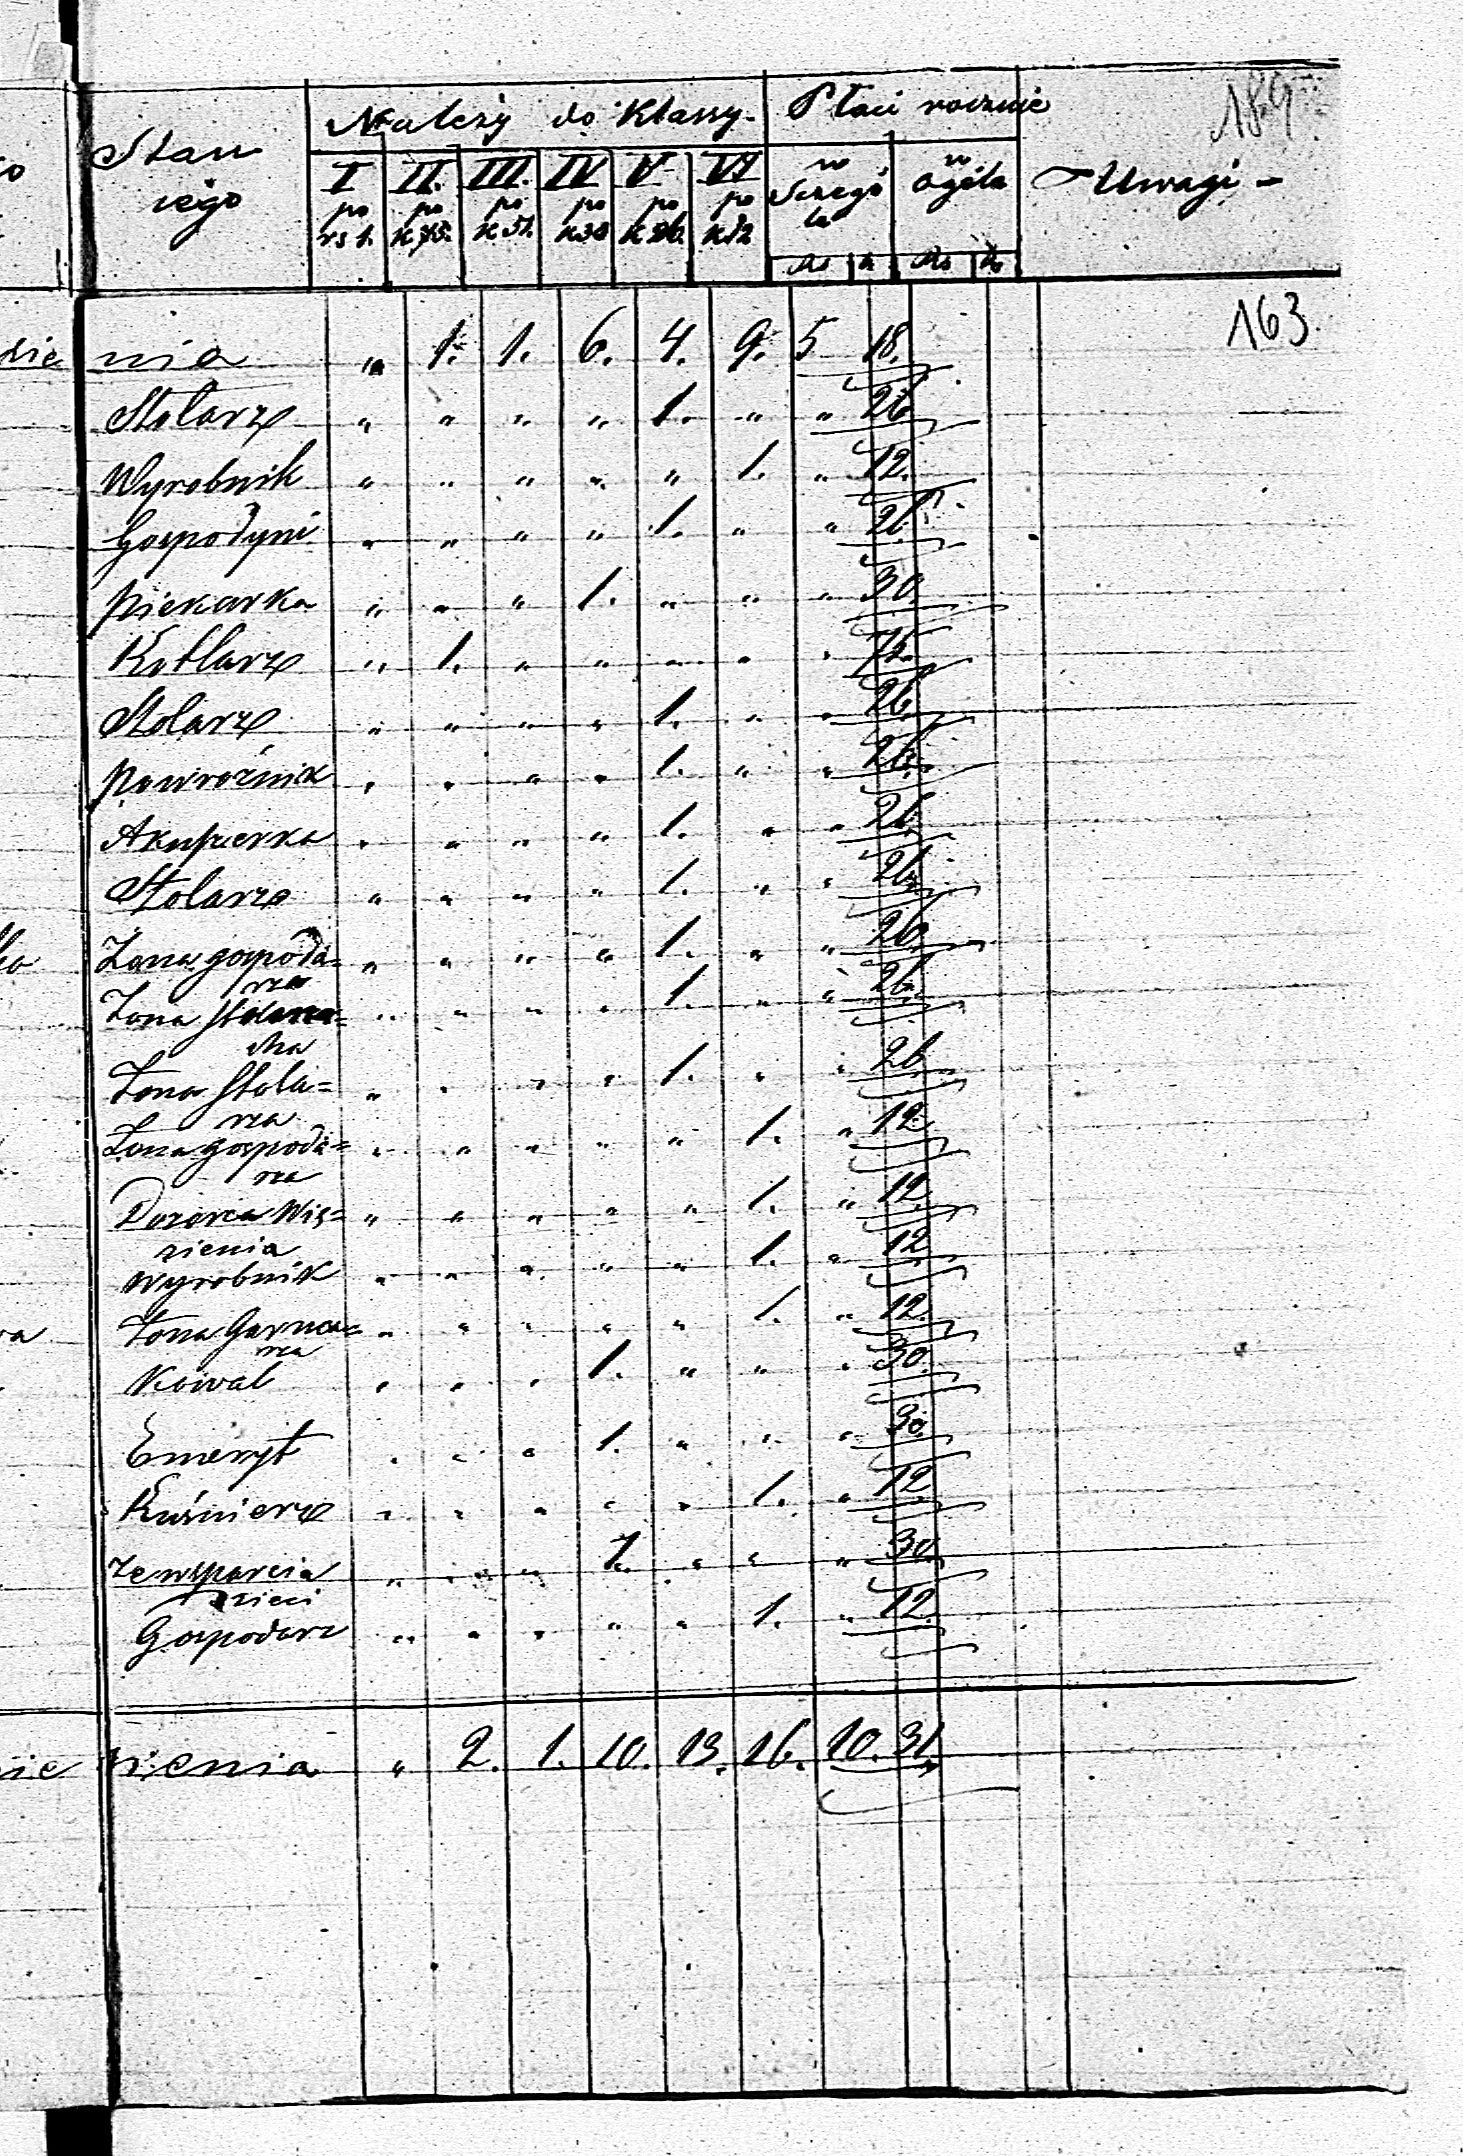 189
Należy do Klassy Płaci rocznie
Stan iego I po rs 1. II. po k 75. III. po k 51. IV po k 30 V po k 26. VI po k 12 w Szczegó le w ogóle Uwagi
Rs k Rs k
163
dzie nia „ 1. 1. 6. 4. 9. 5 18.
Stolarz „ „ „ „ 1. „ „ 26
Wyrobnik „ „ „ „ „ 1. „ 12.
Gospodyni „ „ „ „ 1. „ „ 26.
Piekarka „ „ „ 1. „ „ „ 30.
Kotlarz „ 1. „ „ „ „ „ 75.
Stolarz „ „ „ „ 1. „ „ 26.
Powroźnik „ „ „ „ 1. „ „ 26.
Akuszerka „ „ „ „ 1. „ „ 26.
Stolarz „ „ „ „ 1. „ „ 26.
Żona gospoda= „ „ „ „ 1. „ „ 26.
rza
Żona „ „ „ „ 1. „ „ 26.
Żona Stola= „ „ „ „ 1. „ „ 26
rza
Żona gospoda= „ „ „ „ „ 1. „ 12.
rza
Dozorca Wię= „ „ „ „ „ 1. „ 12
zienia
Wyrobnik „ „ „ „ „ 1. „ 12
Żona Garnca= „ „ „ „ „ 1. „ 12.
rza
Kowal „ „ „ 1. „ „ „ 30.
Emeryt „ „ „ 1. „ „ „ 30.
Kuśnierz „ „ „ „ „ 1. „ 12
Ze wsparcia „ „ „ 1. „ „ „ 30.
dzieci
Gospodarz „ „ „ „ „ 1. „ 12.
nie sienia „ 2. 1. 10. 13. 16. 10. 31.